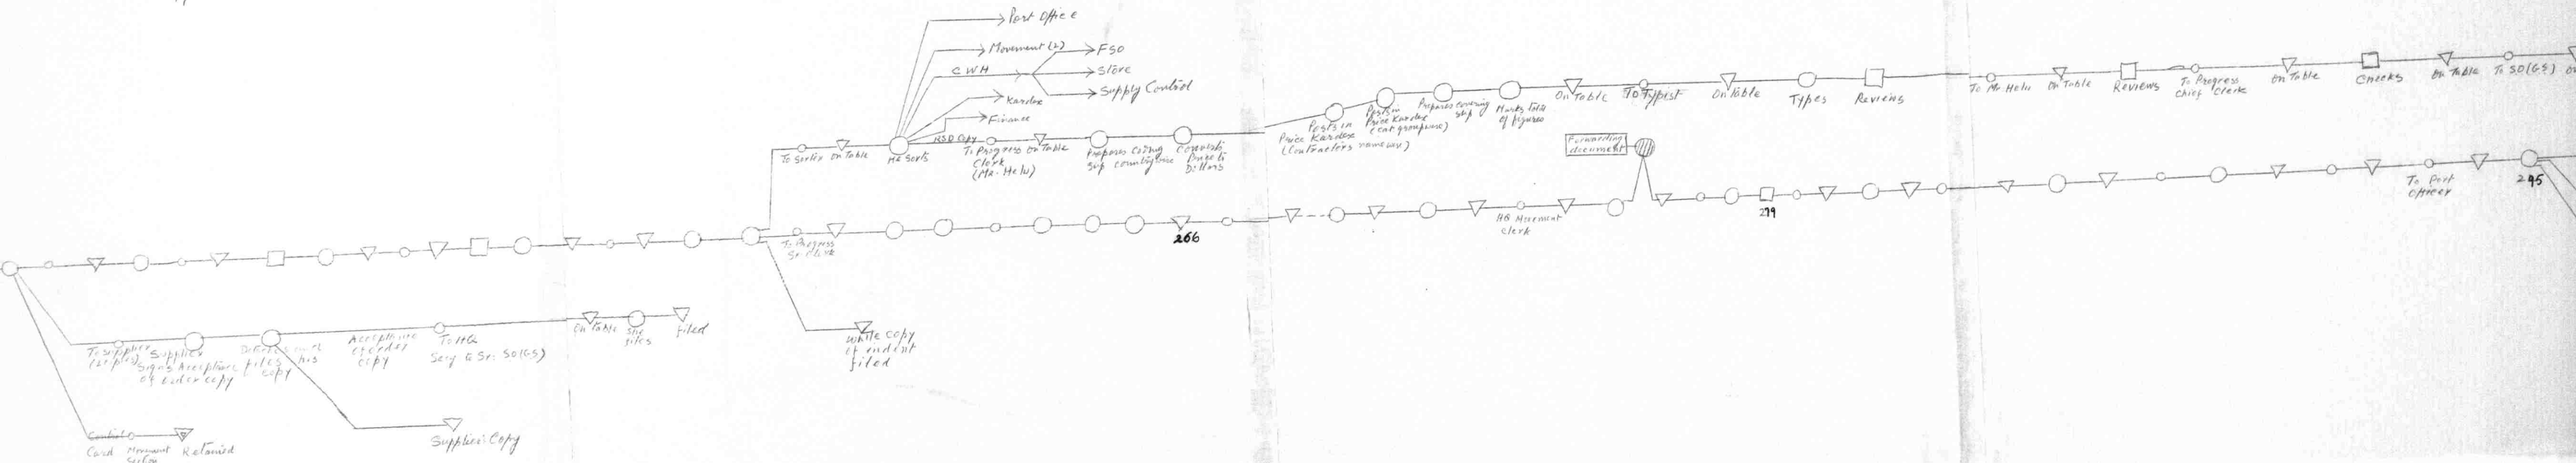 Post Office
Movement (2)
FSO
CWH
Store
Supply Control
Kardex
Finance
RSD Copy
To Sorter
On Table
He Sorts
To Progress
Clerk
(Mr. Helu)
On Table
Prepares
slip countrywise
Converts
Price to
Dollars
Posts in
Price Kardex
(Contractors namewise)
Posts in
Price Kardex
(cat. groupwise)
Prepares covering
slip
Marks total
of figures
On Table
To Typist
On Table
Types
Reviews
To Mr. Helu
On Table
Reviews
To Progress
Chief Clerk
On Table
Checks
On Table
To SO(GS)
Forwarding
document
To Progress
Sr. Clerk
266
HQ Movement
clerk
279
To Port
Officer
295
To Supplier
Supplier
Signs Acceptance
of order copy
files his
copy
Acceptance
of order
copy
To HQ
Secy to Sr. SO(GS)
On Table
She
files
filed
White copy
of indent
filed
Control
Card
Movement
Section
Retained
Supplier's Copy